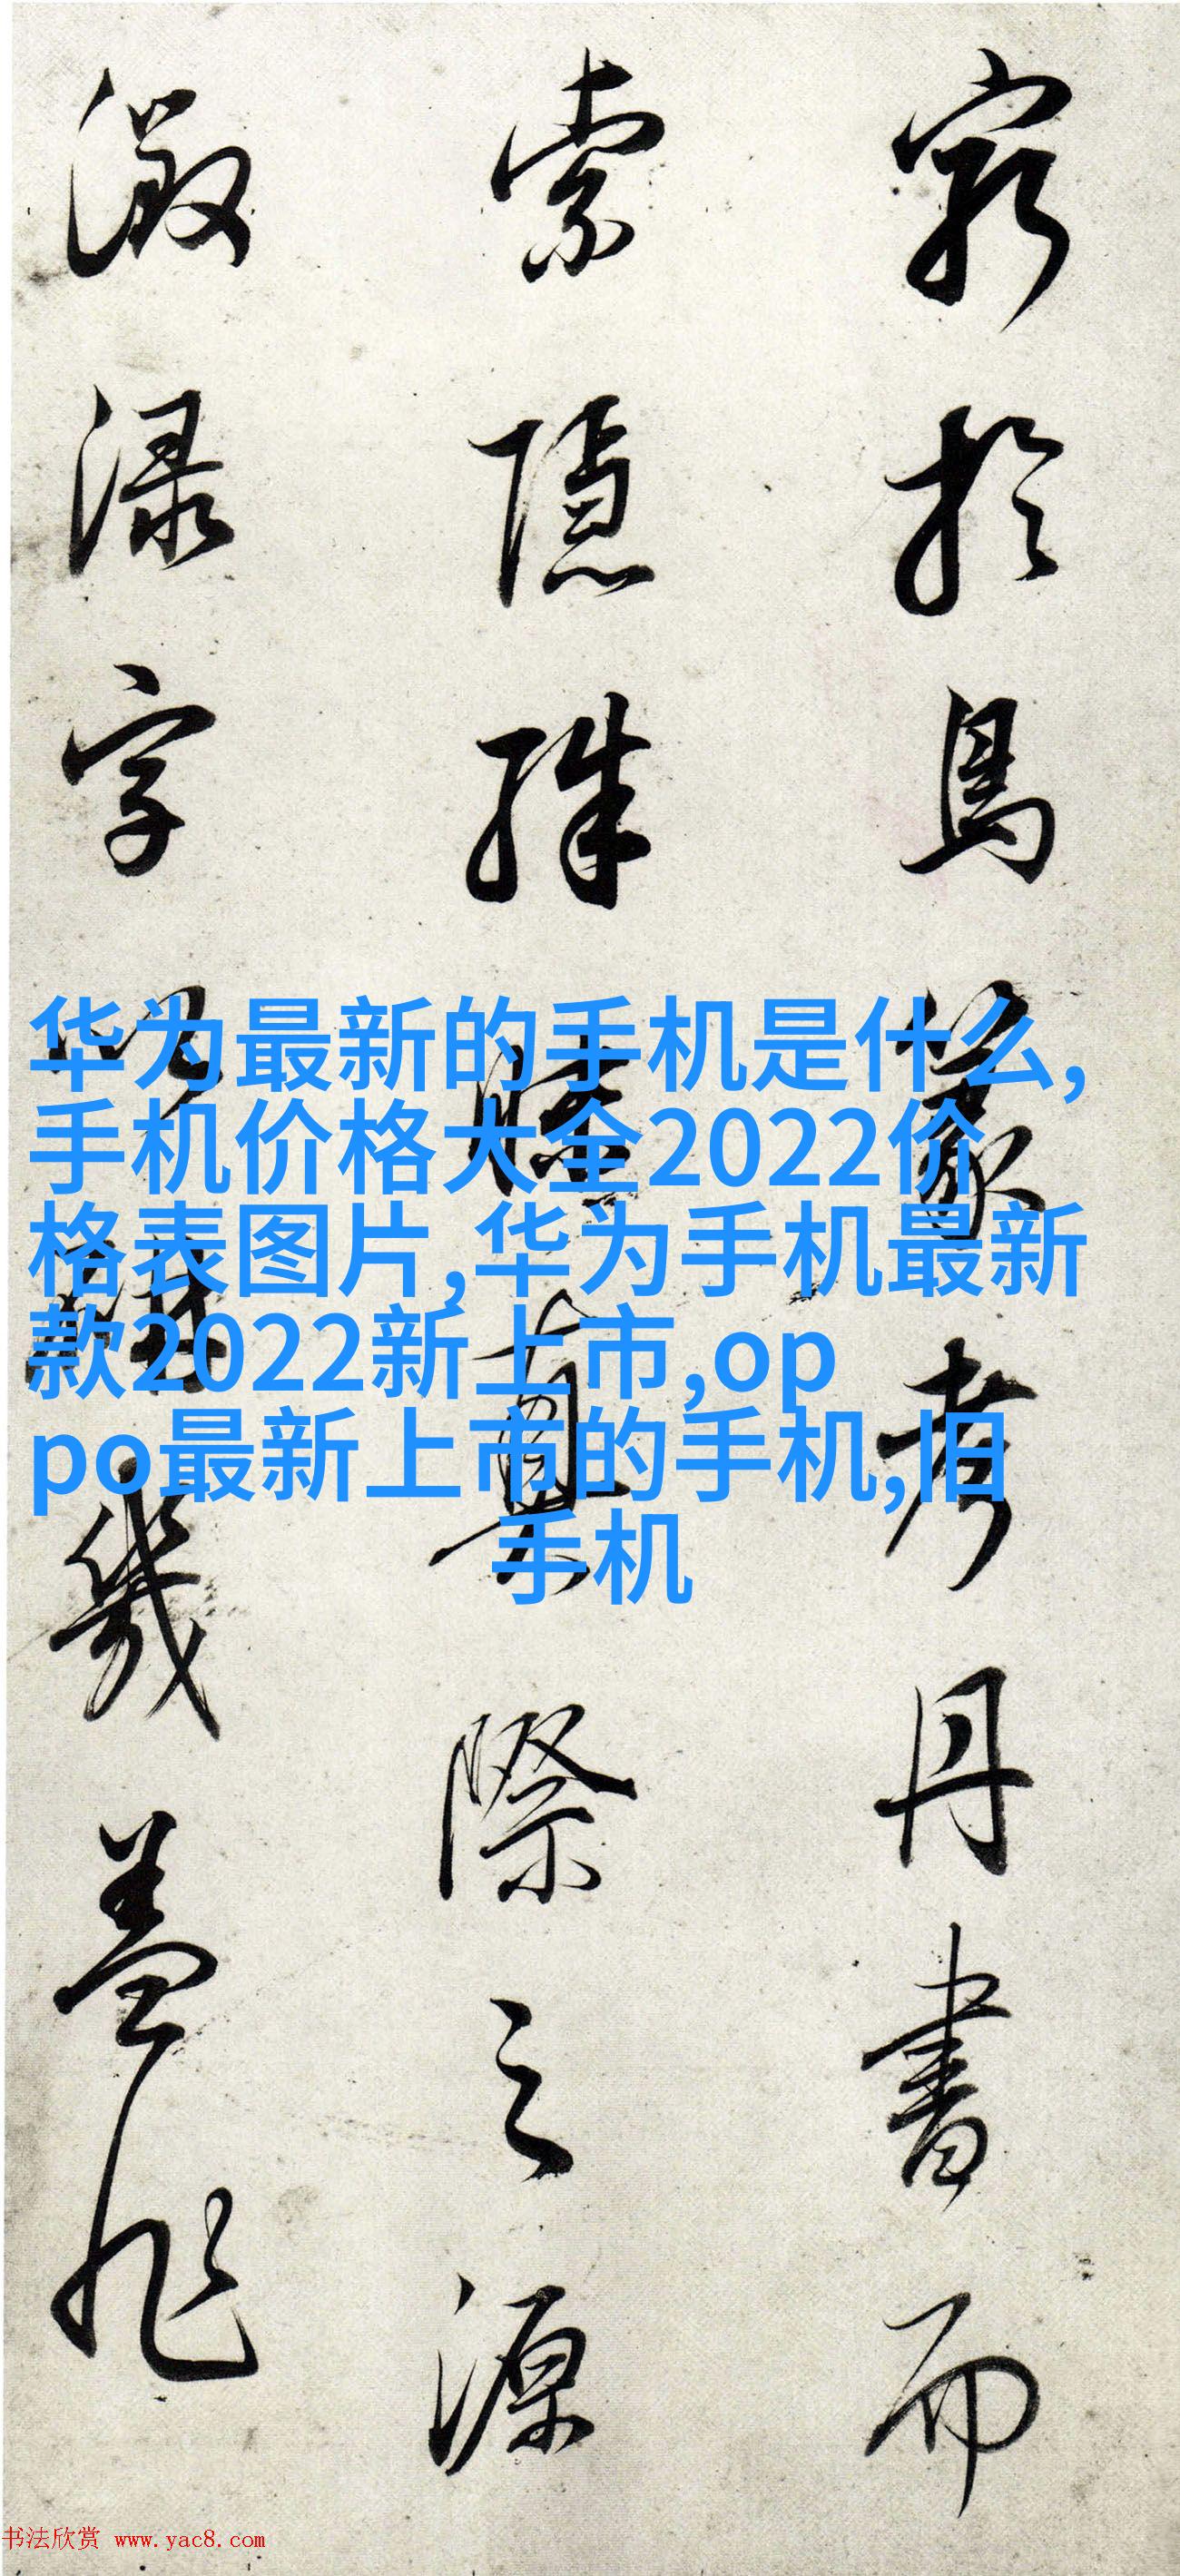 窮於鳥篆考丹書而
索隱殊昧真際之源
激渌字
幾蓋非
华为最新的手机是什么,
手机价格大全2022价
格表图片,华为手机最新
款2022新上市,op
po最新上市的手机,旧
手机
书法欣赏 www.yac8.com